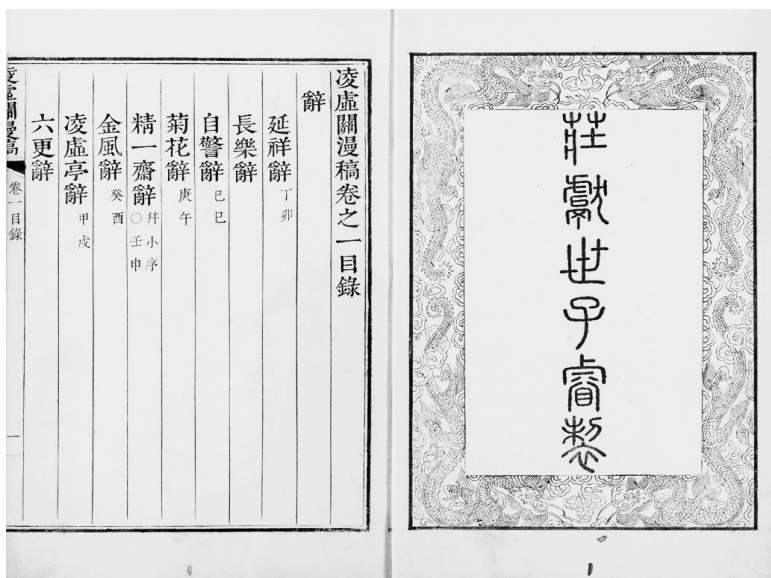 莊獻世子睿製
凌虛關漫稿卷之一目錄
辭
延祥辭 丁卯
長樂辭
自警辭 己巳
菊花辭 庚午
精一齋辭 幷小序○壬申
金風辭 癸酉
凌虛亭辭 甲戌
六更辭
凌虛關漫稿 卷一目錄 一